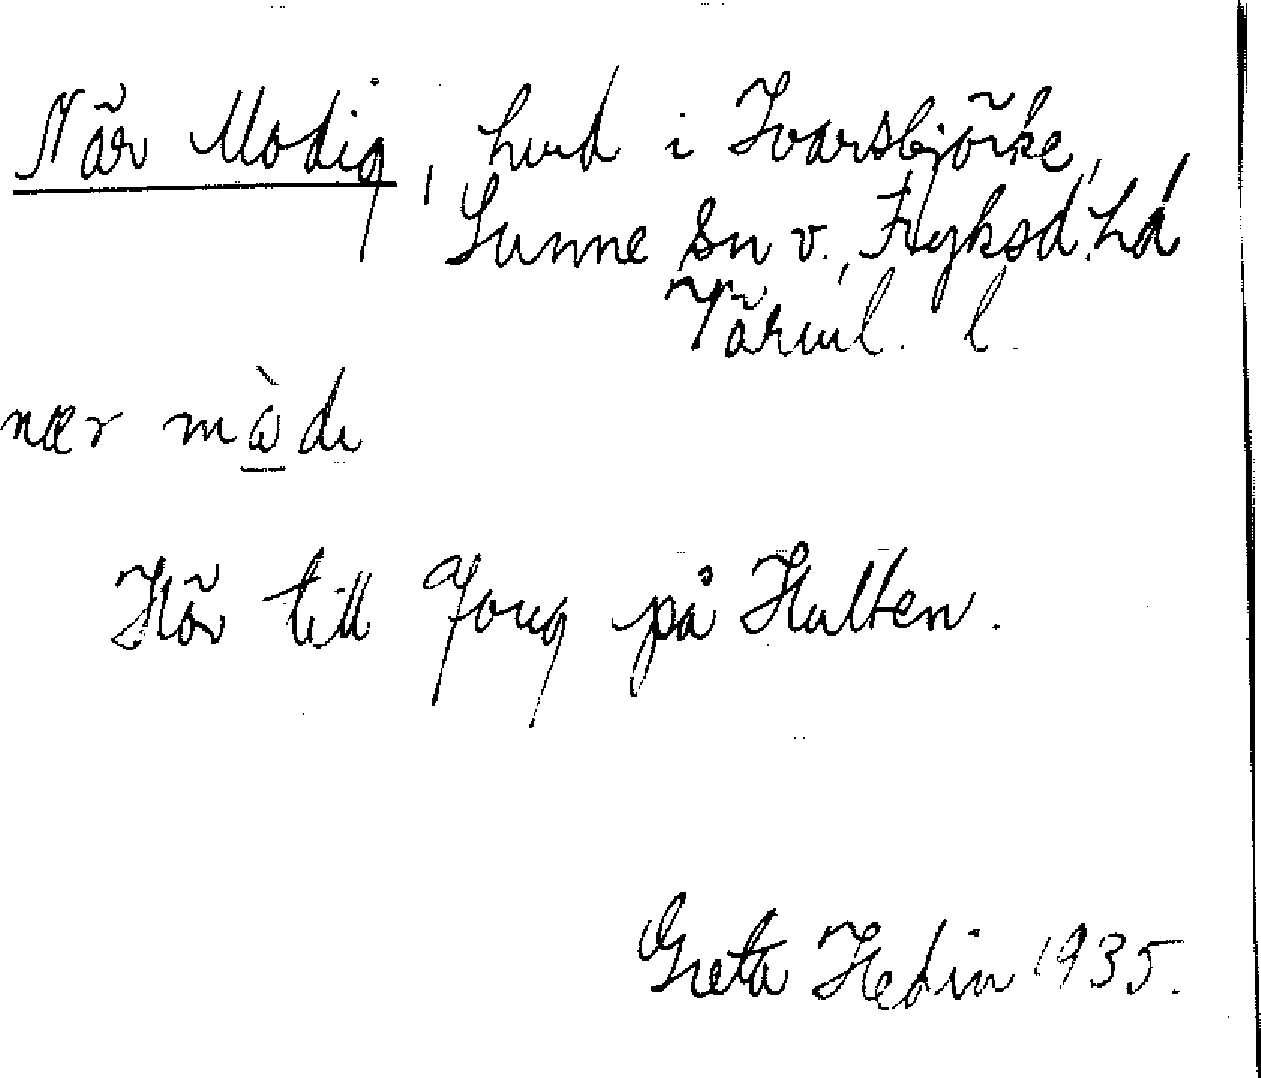 När Modig, hmd i Ivarsbjörke,
Sunne sn v., Fryksd. hd
Värml. l.
nær mὼdι
Hör till Joug på Hulten.
Greta Hedin 1935.